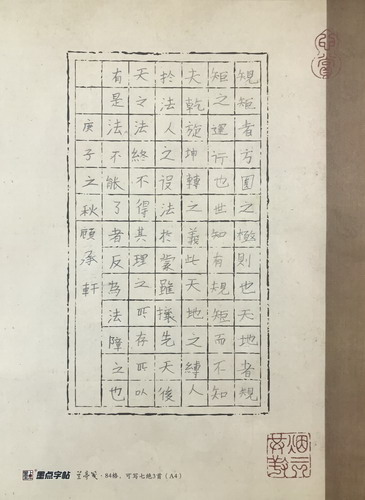 規矩者方圓之極則也天地者規
矩之運行也世知有規矩而不知
夫乾旋坤轉之義此天地之縛人
於法人之役法於蒙雖攘先天後
天之法終不得其理之所存所以
有是法不能了者反為法障之也
庚子之秋顧承軒
墨点字帖 兰亭笺·84格,可写七绝3首(A4)